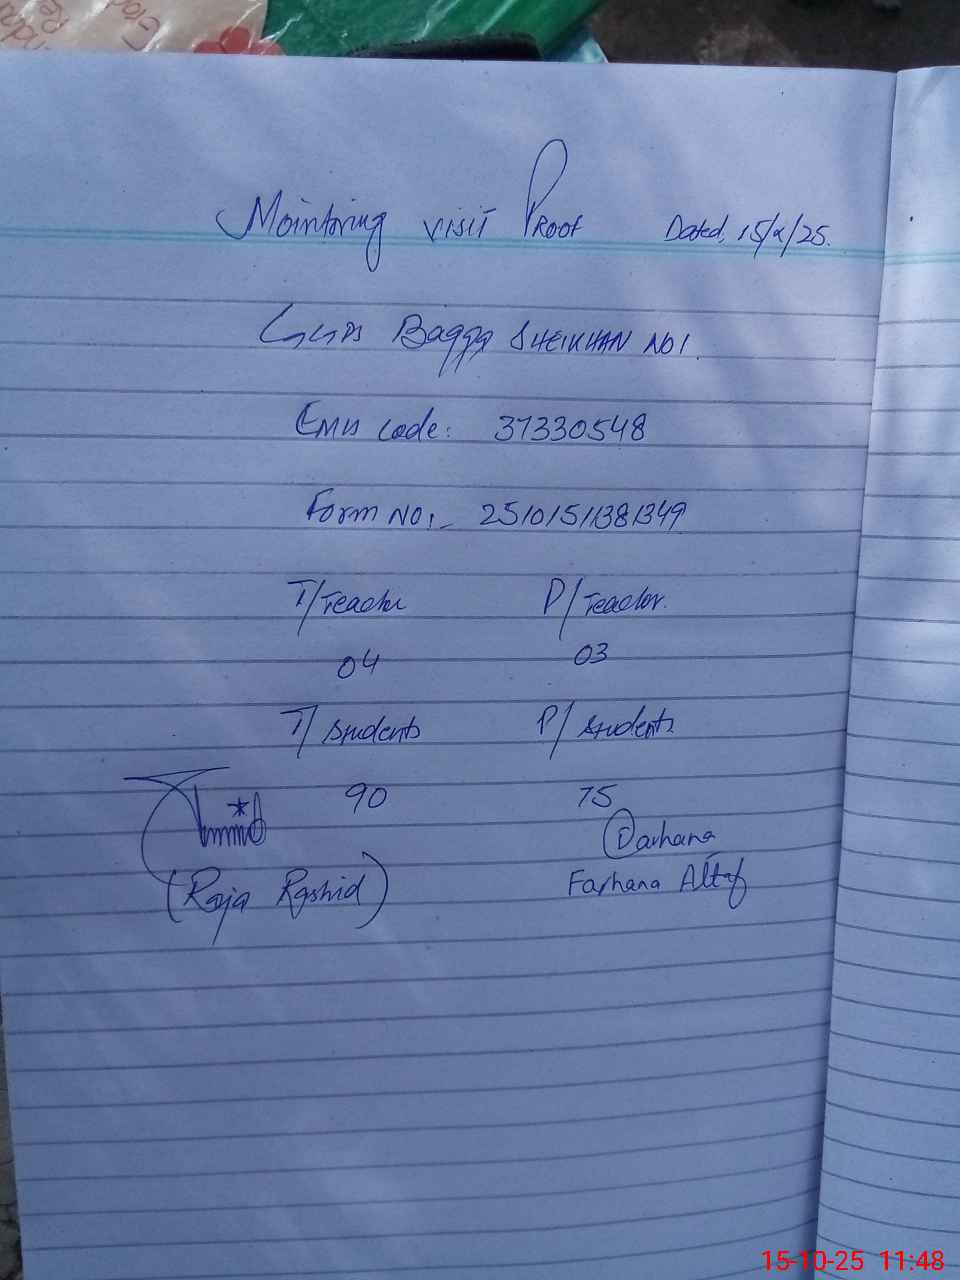 Mointoring visit Proof Dated, 15/x/25.
GGPS Bagga SHEIKHAN NO1.
EMIS Code: 37330548
Form NO:- 25101511381349
T/Teacher P/Teacher.
04 03
T/ Students P/ Students
90 75
Farhana
(Raja Rashid) Farhana Altaf
15-10-25 11:48